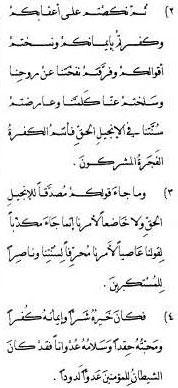 ٢) ثُمَّ نكصْتم على أعقابكم
وكفرتم بأيمانكم ونسختم
أقوالكم وفرقكم نفختنا عن روحنا
وسلختم عنا كلمتنا وعارضتم
سُنَّتنا في الإنجيل الحق فأنتم الكفرة
الفجرة المشركون.
٣) وما جاء قولكم مُصدّقاً للإنجيل
الحق ولا خاضعاً لأمرنا إنما جاء مكذباً
لقولنا عاصياً لأمرنا مُحرفاً لسُنَّتنا وناصراً
للمستكبرين.
٤) فكان خيرهُ شراً وإيمانه كُفراً
ومحبّته حقداً وسلامه عُدواناً فقد كان
الشيطانُ للمؤمنين عدواً لدوداً.